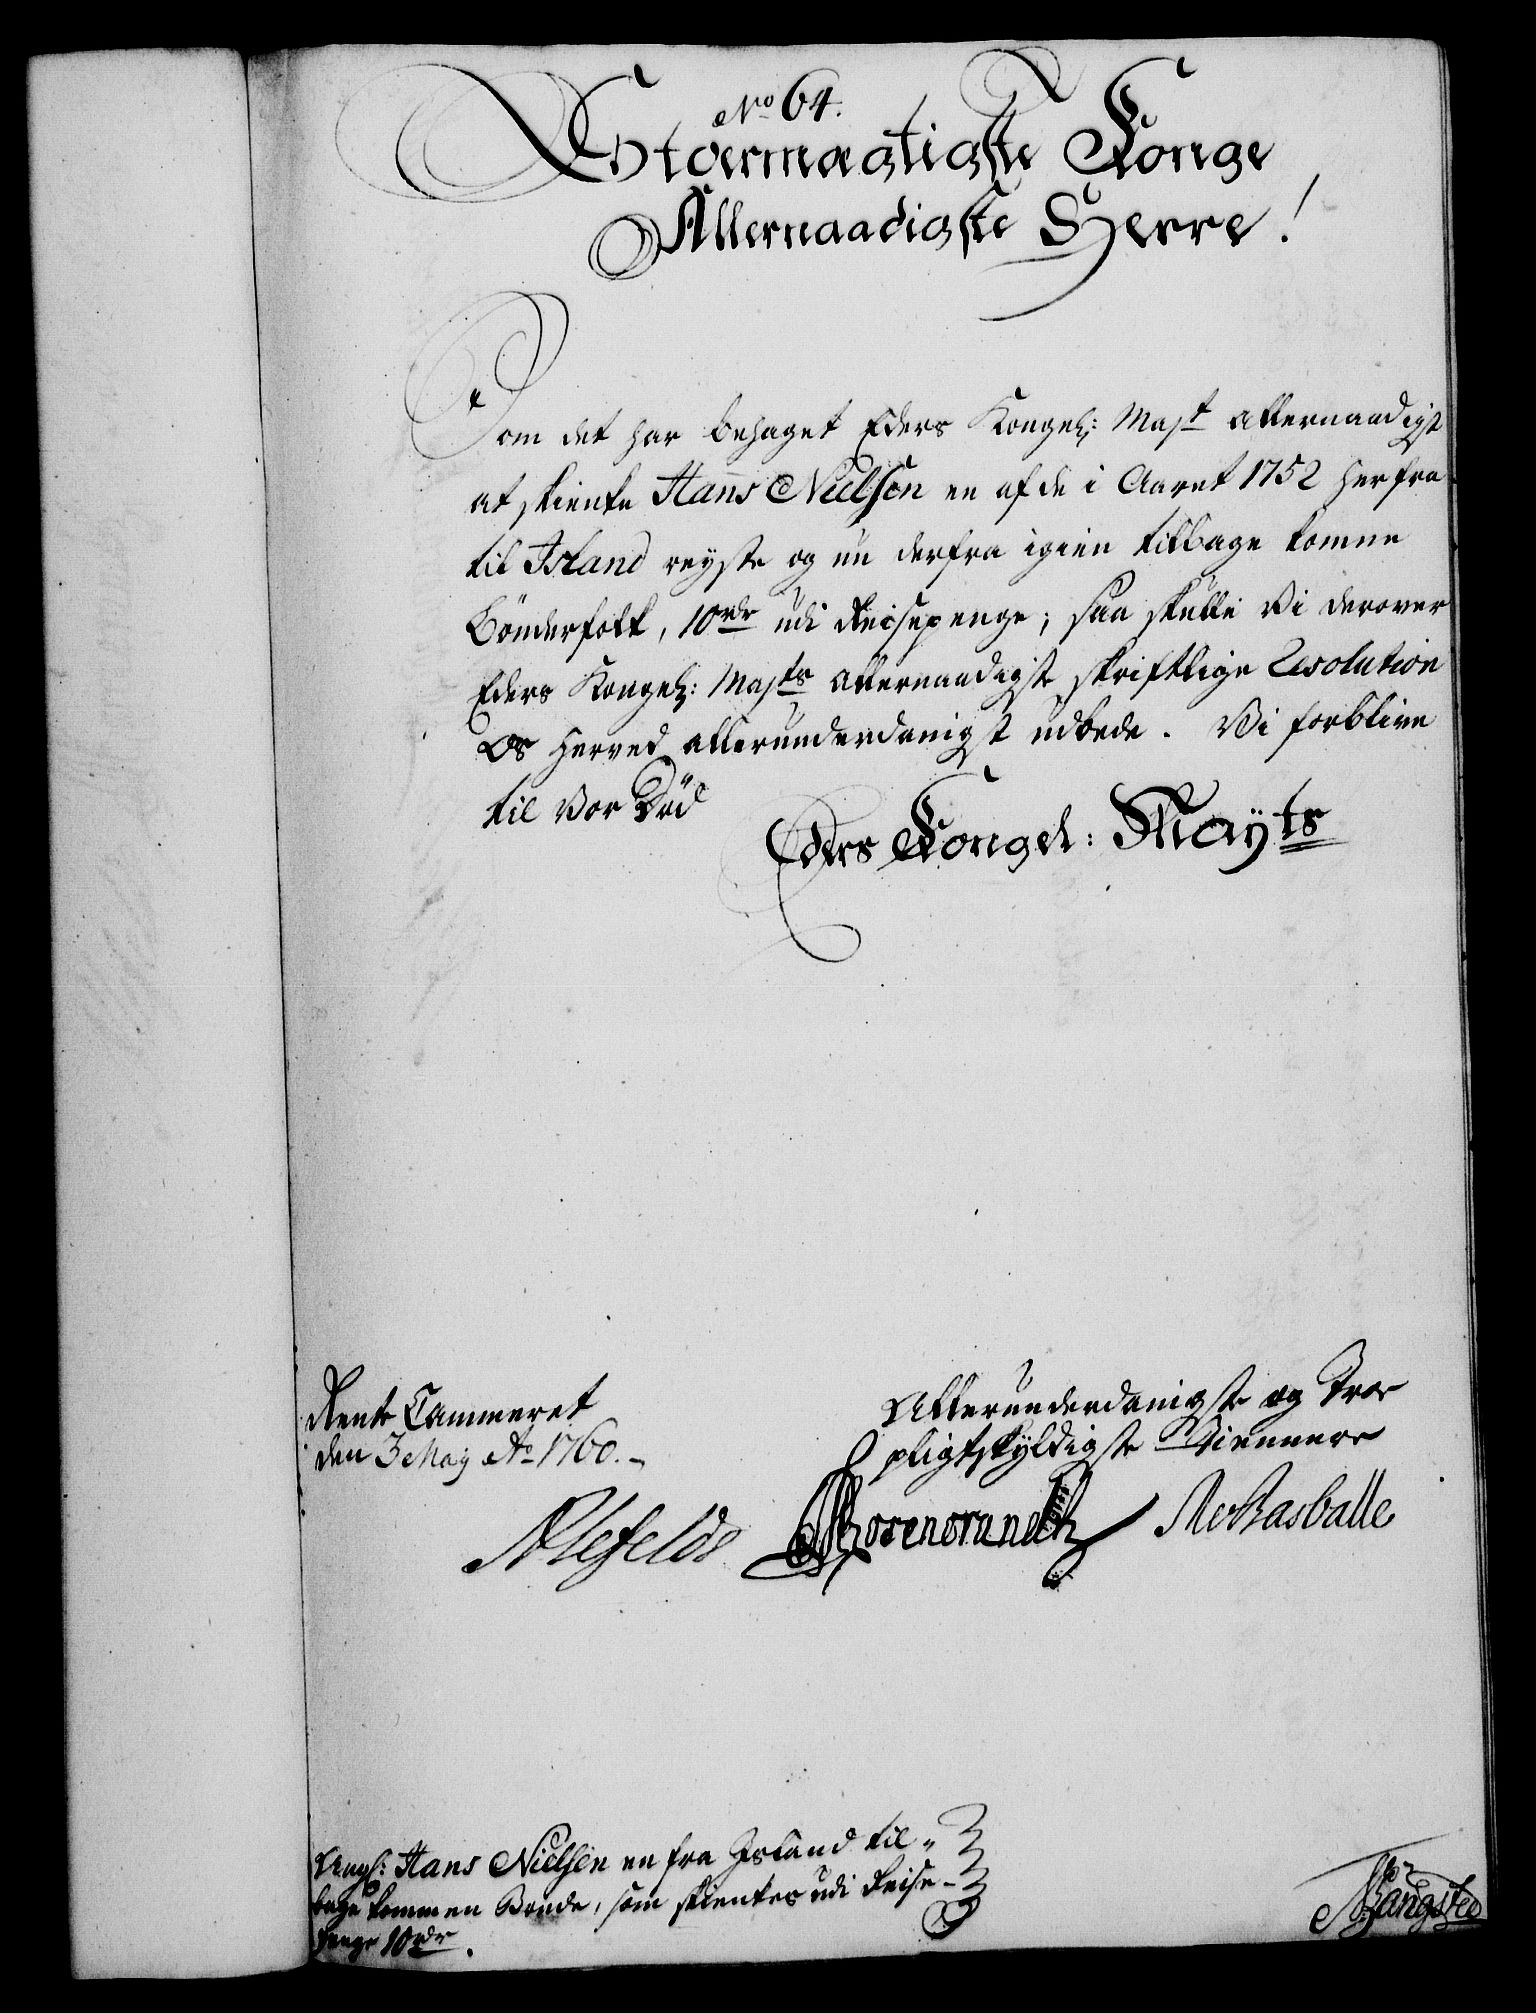 No 64.
Stoermægtigste Konge
Allernaadigste Herre!
Som det har behaget Eders Kongel: Majt allernaadigst
at skienke Hans Nielsen en af de i Aaret 1752 herfra
til Island reyste og nu derfra igien tilbage komne
Bönderfolk, 10 rdr udi Reisepenge; saa skulle Vi derover
Eders Kongel: Majts allernaadigste skriftlige Resolution
Os herved allerunderdanigst udbede. Vi forblive
til Vor Död
Eders Kongel: Mayts
Rente Cammeret
den 3 May Ao 1760.
Allerunderdanigste og Troe
pligtskyldigste Tiennere
Alefeldt Rosenørn
Ang: Hans Nielsen en fra Island til-
bage kommen Bonde, som skienkes udi Reise-
penge 10 rdr.
Bangsted